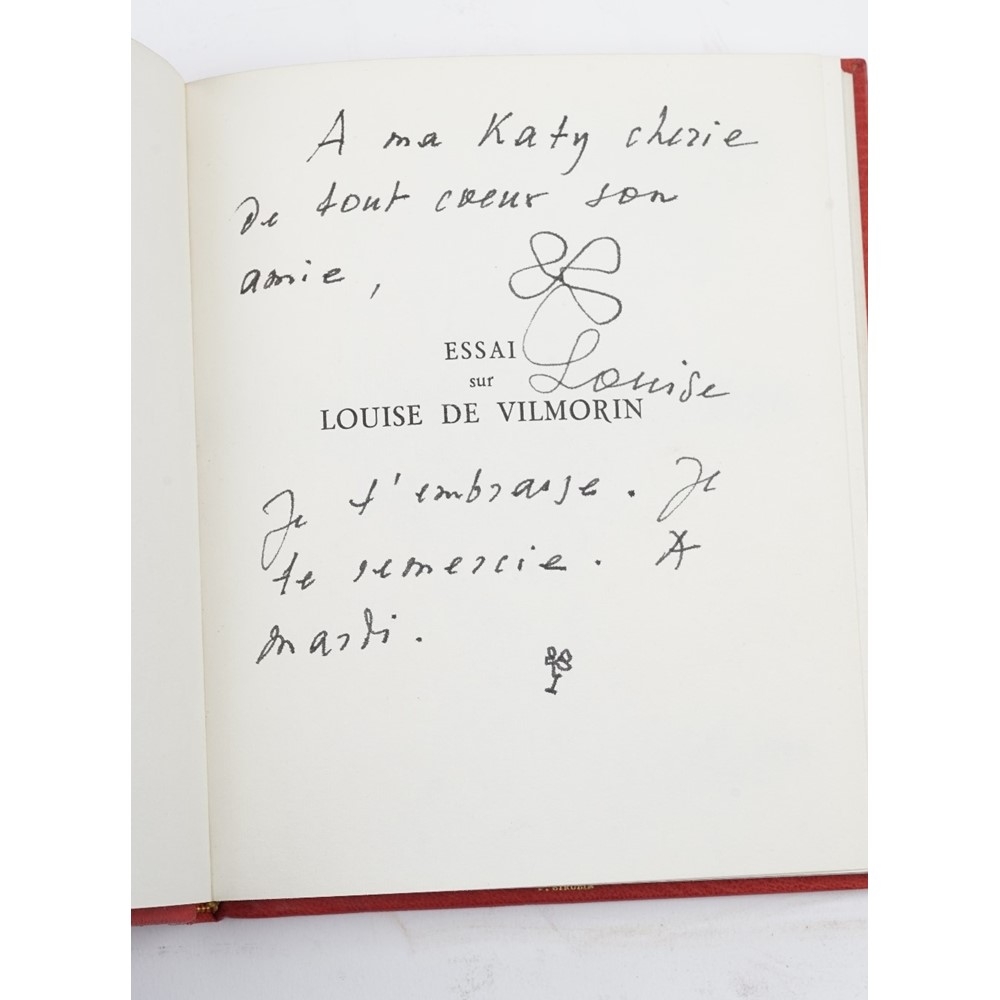 A ma Katy cherie
De tout coeur son
amie,
ESSAI
sur
Louise
LOUISE DE VILMORIN
Je t'embrasse. Je
te remercie. A
mardi.